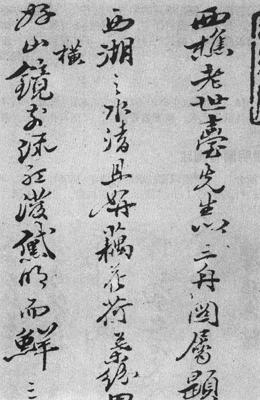 西樵老世臺先生以三舟圖屬題
西湖之水清且妍藕花荷葉
橫
好山鏡疏紅潑黛明而鮮三